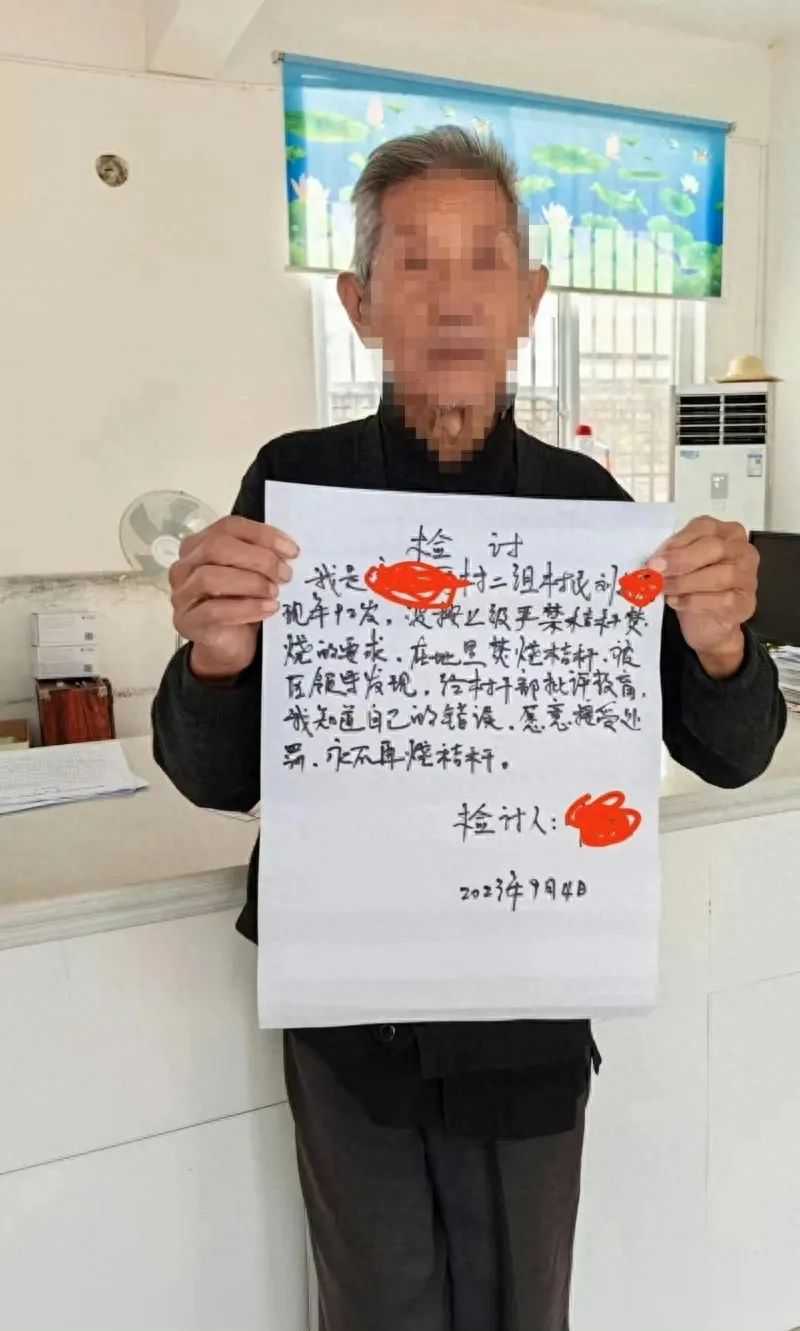 检 讨
我是 村二组村民刘
现年92岁,没按上级严禁秸秆焚
烧的要求,在地里焚烧秸秆,被
区领导发现,经村干部批评教育,
我知道自己的错误,愿意接受处
罚,永不再烧秸秆。
检讨人:
2023年9月4日